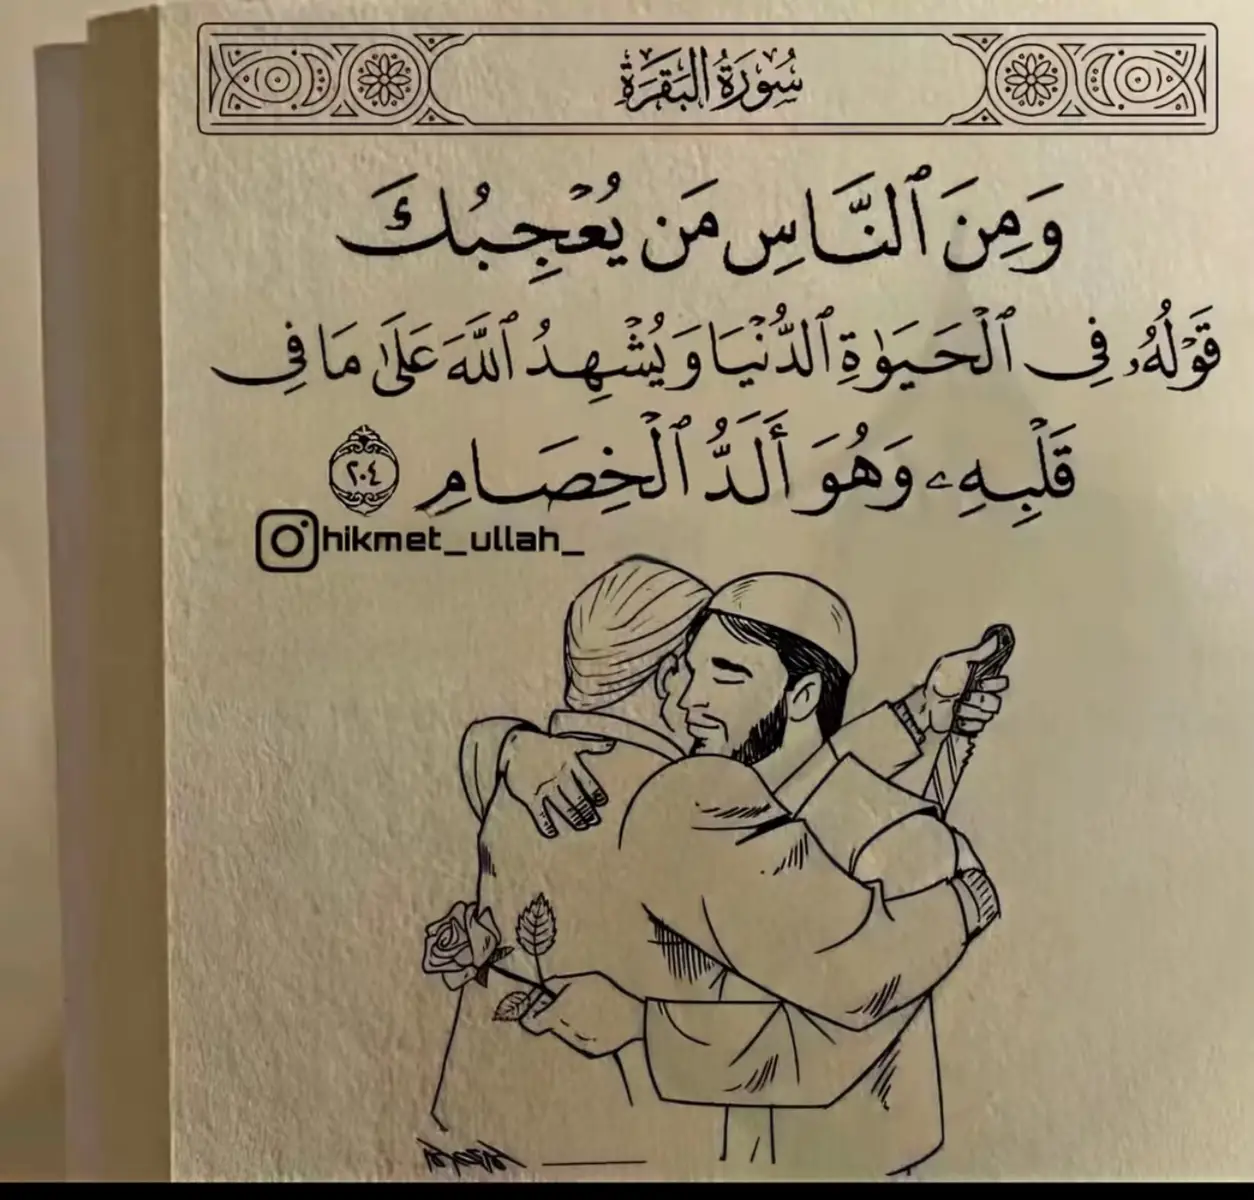 سُورَةُ البَقَرَةِ
وَمِنَ ٱلنَّاسِ مَن يُعۡجِبُكَ
قَوۡلُهُۥ فِي ٱلۡحَيَوٰةِ ٱلدُّنۡيَا وَيُشۡهِدُ ٱللَّهَ عَلَىٰ مَا فِي
قَلۡبِهِۦ وَهُوَ أَلَدُّ ٱلۡخِصَامِ ٢٠٤
hikmet_ullah_